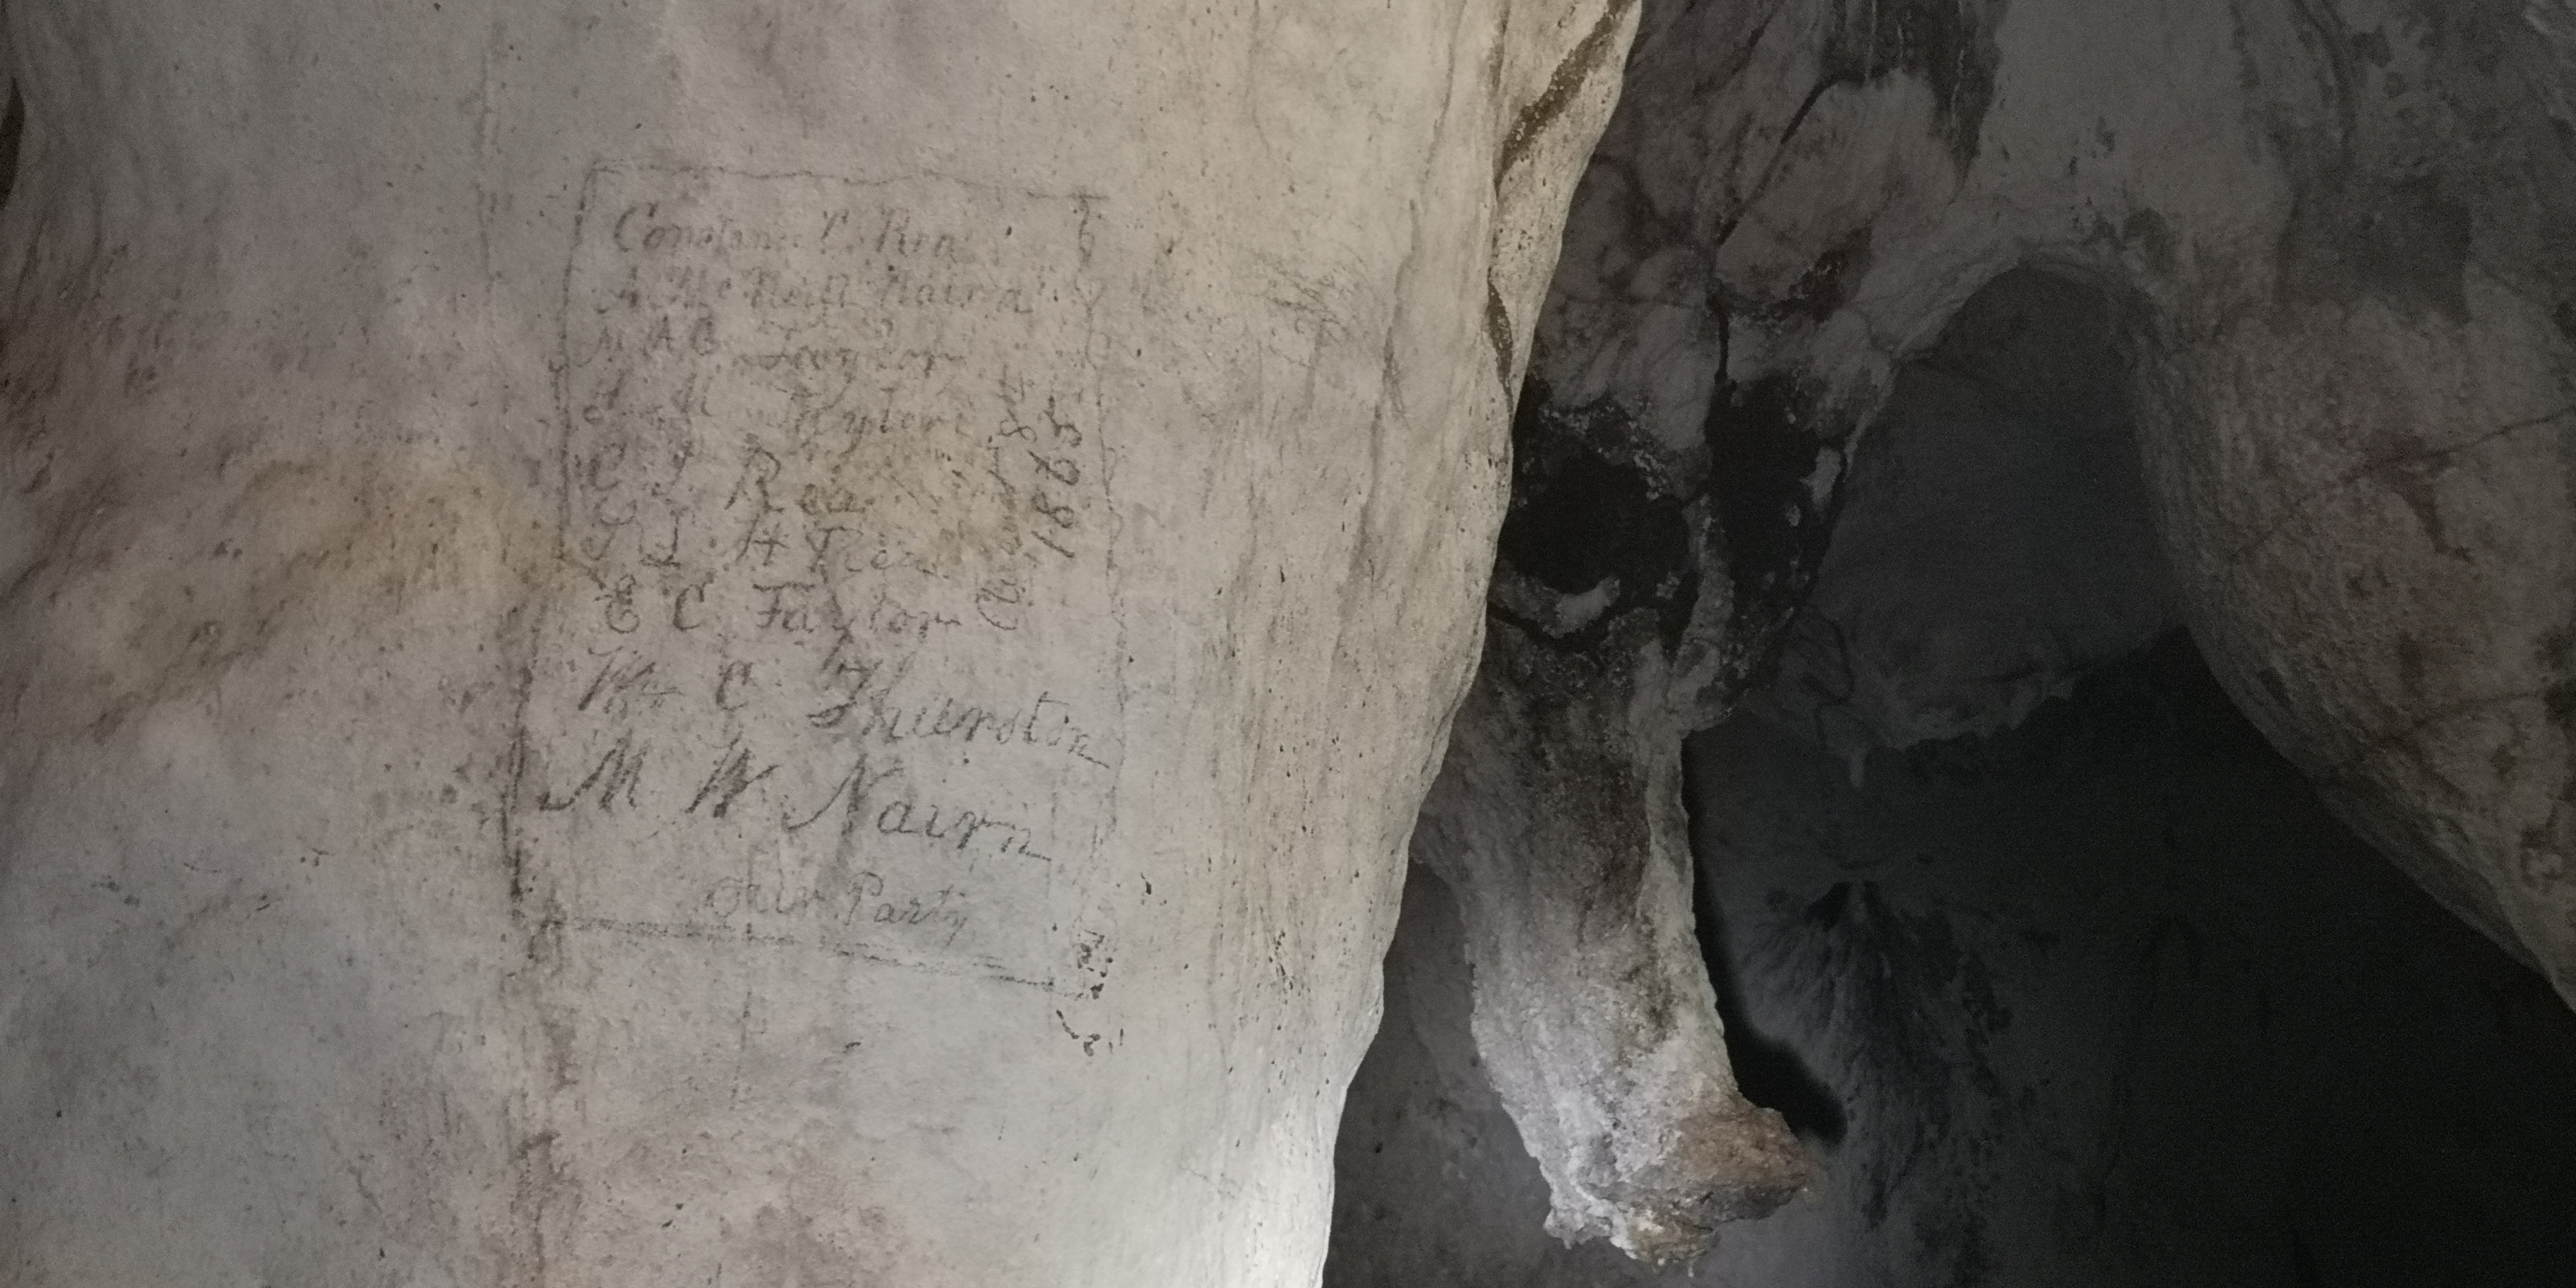 Constance C. Rea
A. Mc Neill Nairn
M A C Taylor
A M Taylor
C J Rea
J. H Rea
E C Taylor
Wm C Thurston
M W Nairn
Their Party
August 8th
1865